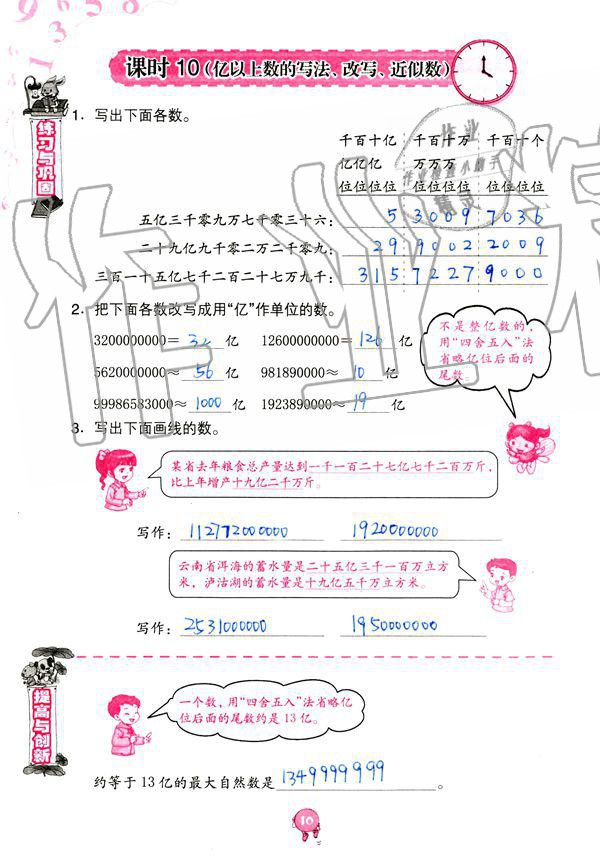 课时10(亿以上数的写法、改写、近似数)
练习与巩固
1. 写出下面各数。
千百十亿 千百十万 千百十个
亿亿亿 万万万
位位位位 位位位位 位位位位
五亿三千零九万七千零三十六: 5 3009 7036
二十九亿九千零二万二千零九: 29 9002 2009
三百一十五亿七千二百二十七万九千: 315 7227 9000
2. 把下面各数改写成用“亿”作单位的数。
3200000000= 32 亿 12600000000= 126 亿
5620000000≈ 56 亿 981890000≈ 10 亿
99986583000≈ 1000 亿 1923890000≈ 19 亿
不是整亿数的,
用“四舍五入”法
省略亿位后面的
尾数。
3. 写出下面画线的数。
某省去年粮食总产量达到一千一百二十七亿七千二百万斤,
比上年增产十九亿二千万斤。
写作: 112772000000 1920000000
云南省洱海的蓄水量是二十五亿三千一百万立方
米,泸沽湖的蓄水量是十九亿五千万立方米。
写作: 2531000000 1950000000
提高与创新
一个数,用“四舍五入”法省略亿
位后面的尾数约是13亿。
约等于13亿的最大自然数是 1349999999 。
10